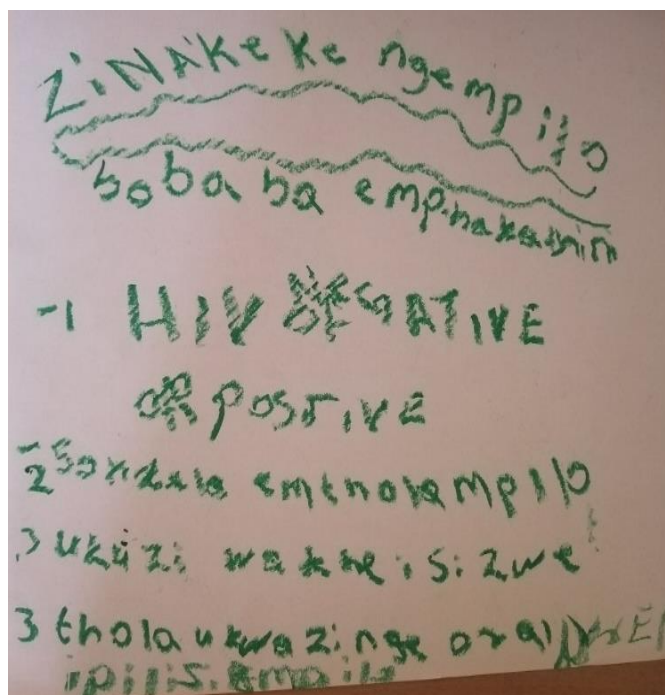 ZiNAKeKe ngempilo
bobaba
-1 HIV NEGATIVE
OR POSTIVE
-2 Sondela emtholampilo
3 ukuzi wakhe isizwe
3 thola ukwazi nge oral PrEP